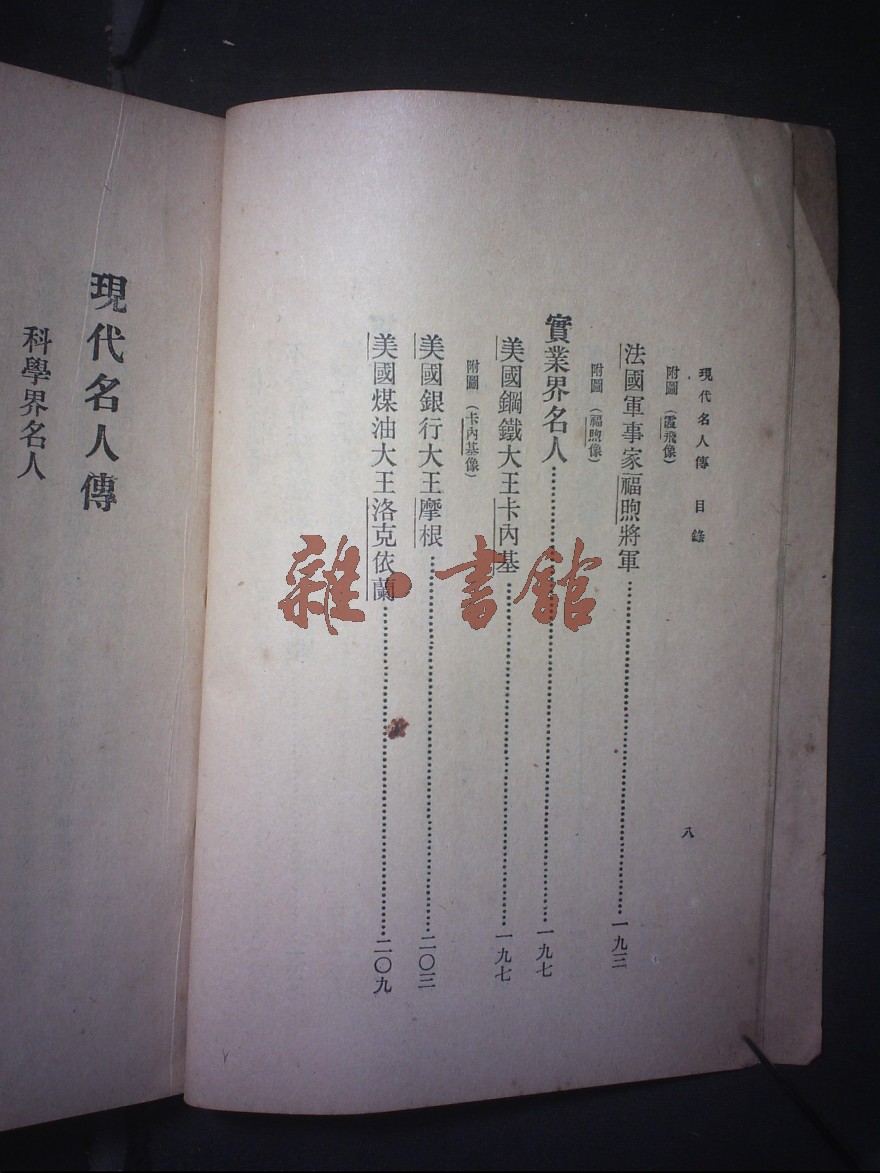 現代名人傳 目錄
八
附圖（霞飛像）
法國軍事家福煦將軍……一九三
附圖（福煦像）
實業界名人……一九七
美國鋼鐵大王卡內基……一九七
附圖（卡內基像）
美國銀行大王摩根……二〇三
美國煤油大王洛克依蘭……二〇九
現代名人傳
科學界名人
雜·書館